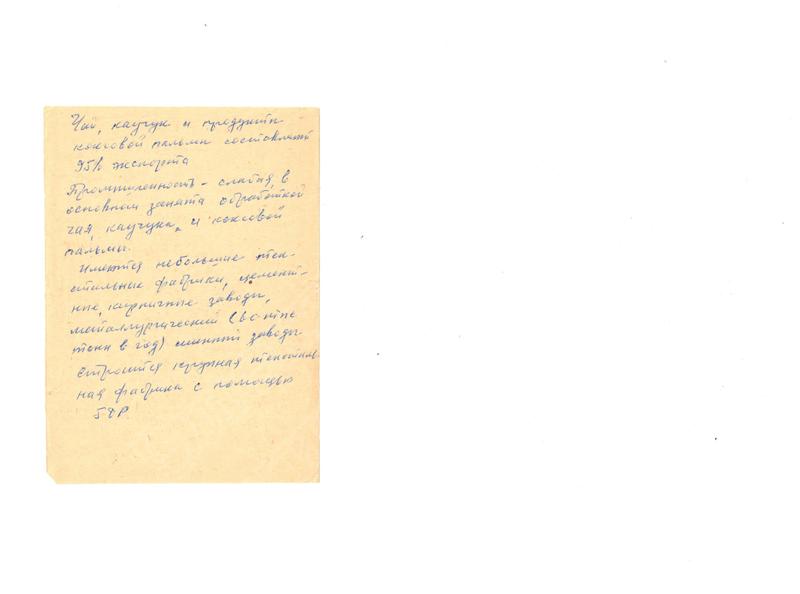 Чай, каучук и продукты
кокосовой пальмы составляют
95% экспорта
Промышленность – слабая, в
основном занята обработкой
чая, каучука, и кокосовой
пальмы.
Имеются небольшие тек-
стильные фабрики, цемент-
ные, кирпичные заводы,
металлургический
тонн в год) заводы
Строится крупная текстиль
ная фабрика с помощью